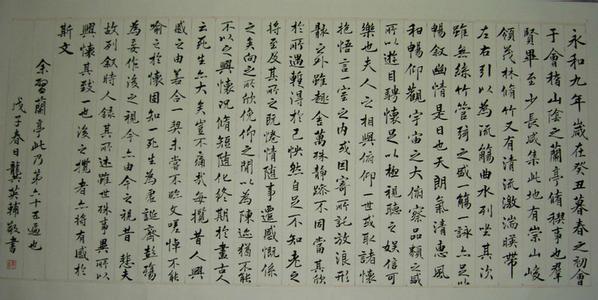 永和九年歲在癸丑暮春之初會
于會稽山陰之蘭亭脩稧事也羣
賢畢至少長咸集此地有崇山峻
領茂林脩竹又有清流激湍暎帶
左右引以為流觴曲水列坐其次
雖無絲竹管弦之盛一觴一詠亦足以
暢敘幽情是日也天朗氣清惠風
和暢仰觀宇宙之大俯察品類之盛
所以遊目騁懷足以極視聽之娛信可
樂也夫人之相與俯仰一世或取諸懷
抱悟言一室之內或因寄所託放浪形
骸之外雖趣舍萬殊靜躁不同當其欣
於所遇暫得於己怏然自足不知老之
將至及其所之既惓情隨事遷感慨係
之矣向之所欣俛仰之閒以為陳迹猶不能
不以之興懷況脩短隨化終期於盡古人
云死生亦大矣豈不痛哉每攬昔人興
感之由若合一契未嘗不臨文嗟悼不能
喻之於懷固知一死生為虛誕齊彭殤
為妄作後之視今亦由今之視昔 悲夫
故列敘時人錄其所述雖世殊事異所以
興懷其致一也後之攬者亦將有感於
斯文
余習蘭亭此乃第六十五遍也
戊子春日龔英輔敬書